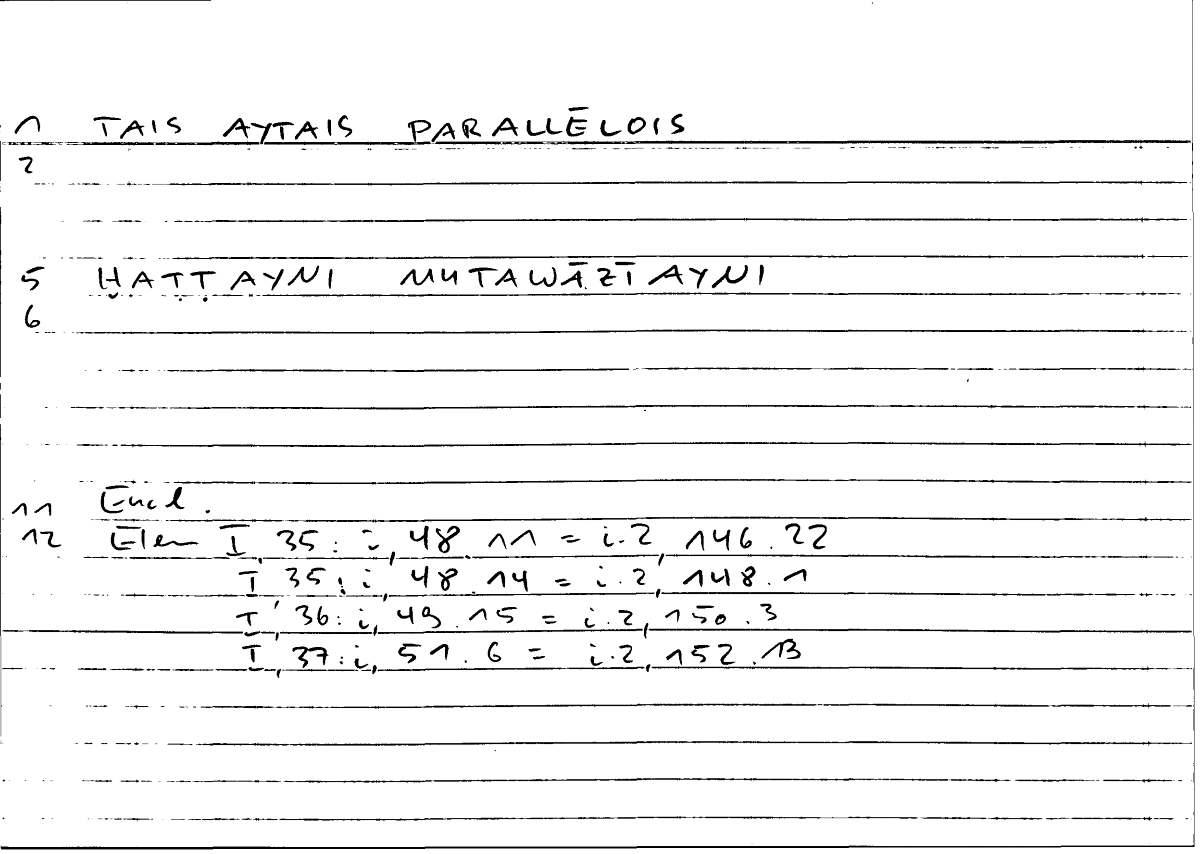 1 TAIS AYTAIS PARALLĒLOIS
2
5 ḪAṬṬAYNI MUTAWĀZĪAYNI
6
11 Eucl.
12 Elem I, 35: i, 48.11 = i.2, 146.22
I, 35: i, 48.14 = i.2, 148.1
I, 36: i, 49.15 = i.2, 150.3
I, 37: i, 51.6 = i.2, 152.13